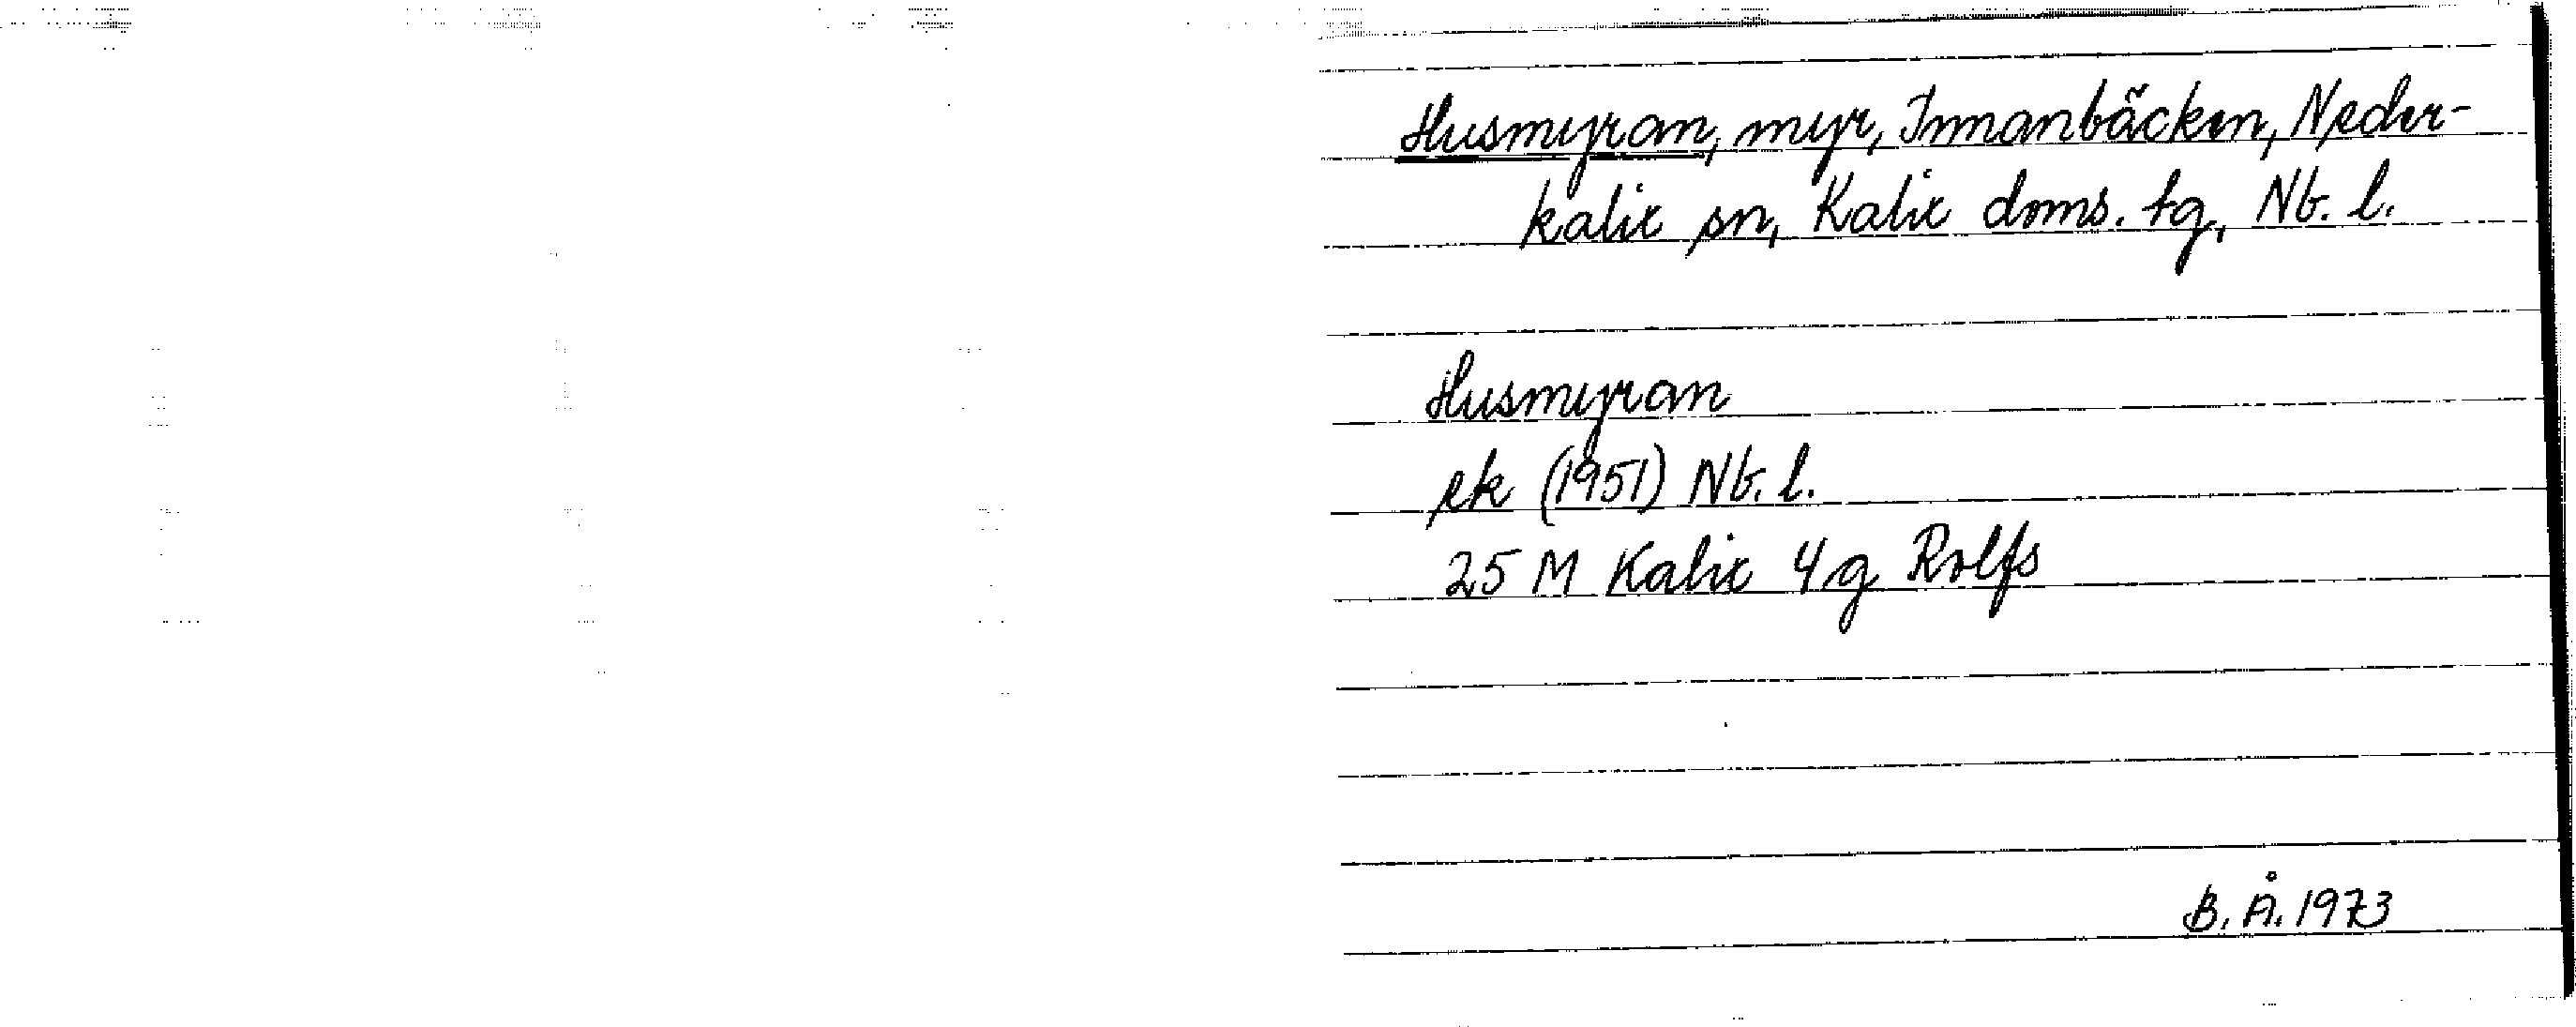 Husmyran, myr, Innanbäcken, Neder-
kalix sn, Kalix doms. tg, Nb. l.
Husmyran
ek (1951) Nb. l.
25 M Kalix 4g Rolfs
B. Å. 1973